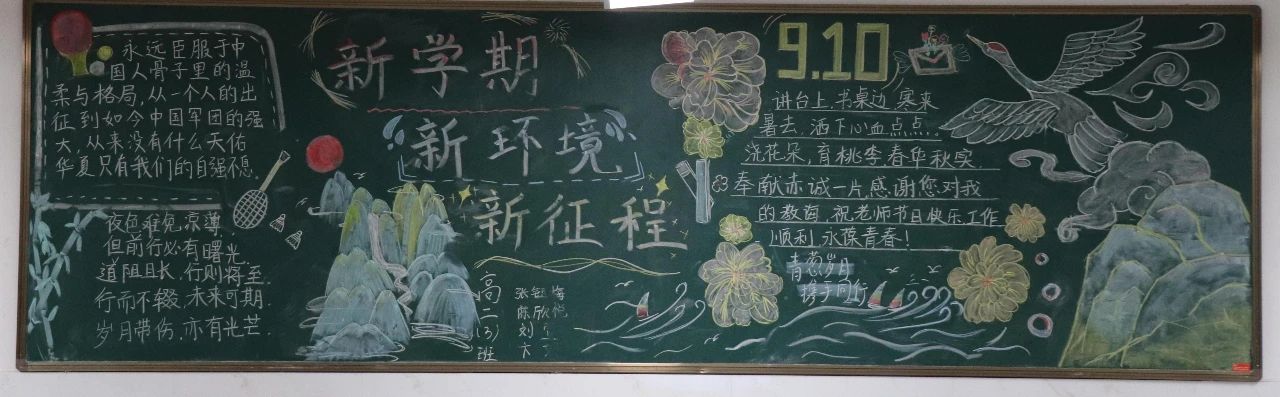 永远臣服于中
国人骨子里的温
柔与格局,从一个人的出
征到如今中国军团的强
大,从来没有什么天佑
华夏只有我们的自强不息.
夜色难免凉薄,
但前行必有曙光.
道阻且长,行则将至.
行而不辍,未来可期.
岁月带伤,亦有光芒.
新学期
新环境
新征程
高二(3)班
9.10
讲台上,书桌边,寒来
暑去,洒下心血点点.
浇花朵,育桃李春华秋实
奉献赤诚一片,感谢您对我
的教诲,祝老师节日快乐工作
顺利,永葆青春!
青葱岁月
携手同行